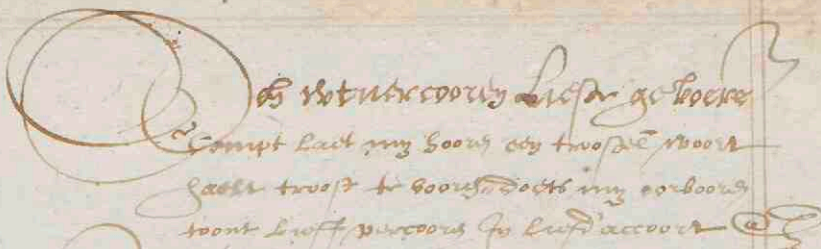 Och wtvercooren Liefste gebooren
Compt laet my hooren een troostel woort
haelt troost te vooren doets my oorboren
toont Lieff vercooren In Liefd' accoort